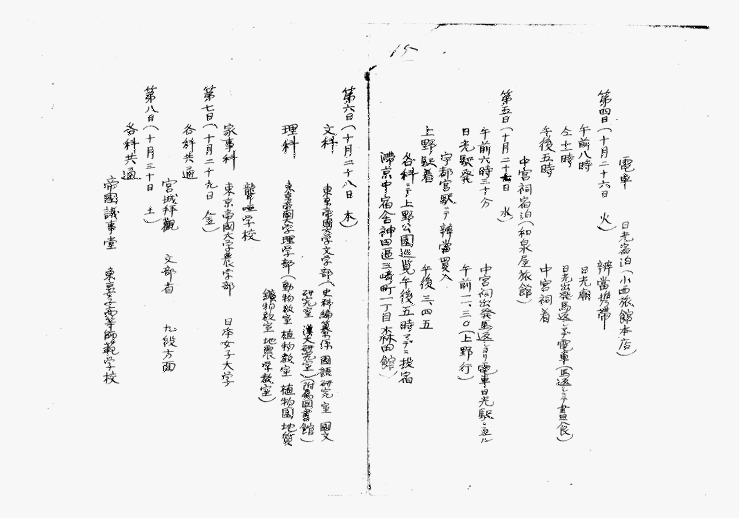 15
電車　日光宿泊(小西旅館本店)
第四日(十月二十六日　火)
午前八時　辨當携帯
仝十時　日光廟
日光出発馬返マデ電車(馬返ニテ昼食)
午後五時　中宮祠着
中宮祠宿泊(和泉屋旅館)
第五日(十月二十七日　水)
午前六時三十分　中宮祠出発馬返ヨリ電車日光駅ニ至ル
日光駅発　午前一一、三〇(上野行)
宇都宮駅ニテ辨當買入
上野駅着　午後三、四五
各科ニテ上野公園巡覧午後五時マデニ投宿
滞京中ノ宿舎神田區三崎町一丁目森田館)
第六日(十月二十八日　木)
文科　東京帝國大学文学部(史料編纂係　國語研究室　國文
研究室　漢文研究室)(附属圖書館)
理科　東京帝國大学理学部(動物教室　植物教室　植物園　地質
鑛物教室　地震学教室)
聾唖学校
家事科　東京帝國大学農学部　日本女子大学
第七日(十月二十九日　金)
各科共通　宮城拝觀　文部省　九段方面
第八日(十月三十日　土)
各科共通　帝國議事堂　東京女子高等師範学校